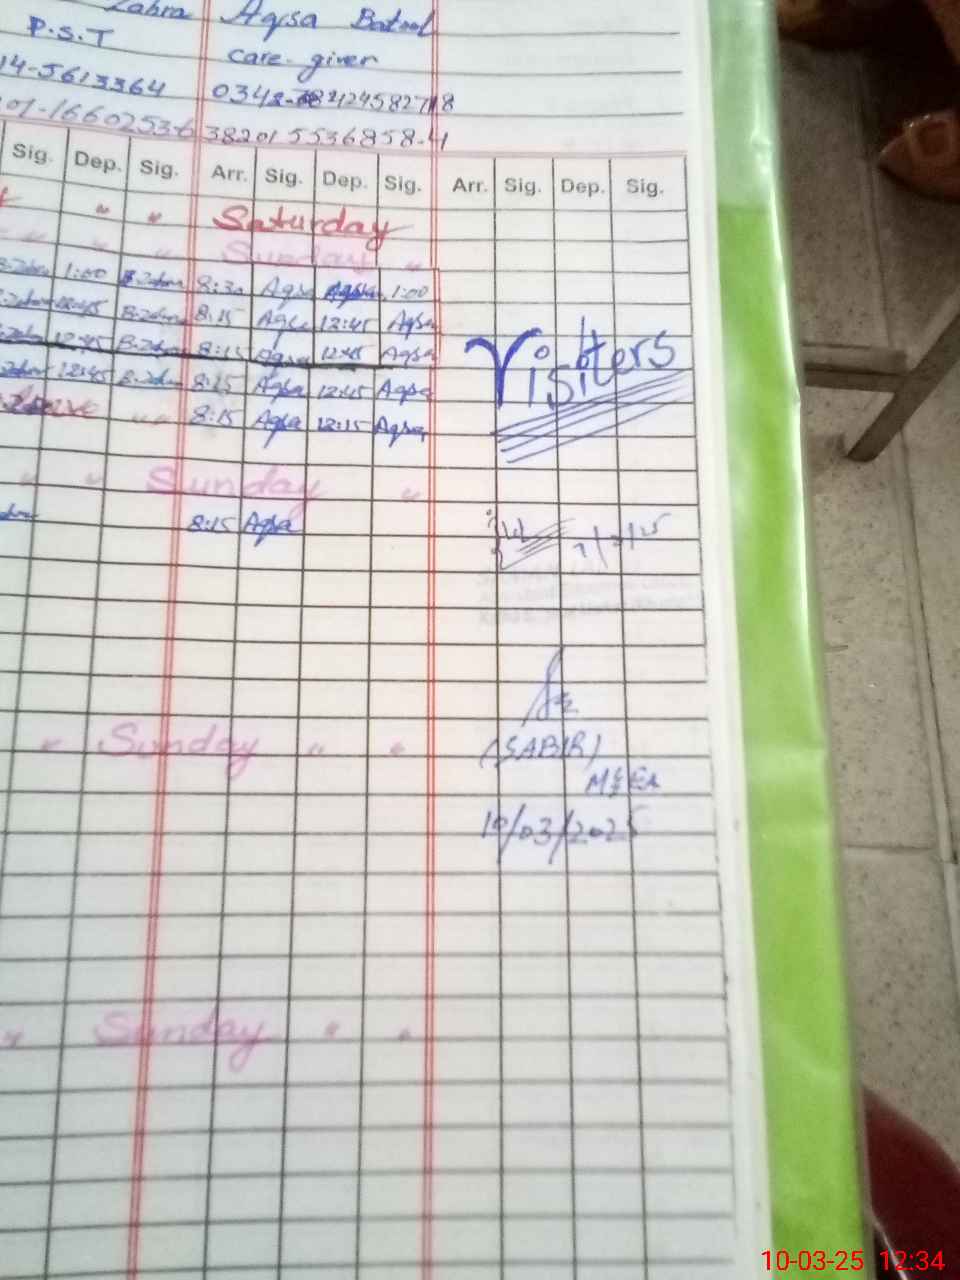 Zahra Aqsa Batool
P.S.T care-giver
14-5613364
01-1660253-6 38201 5536858-4
Sig. Dep. Sig. Arr. Sig. Dep. Sig. Arr. Sig. Dep. Sig.
" " Saturday
" " " Sunday "
B.Zahra 1:00 B.Zahra 8:30 Aqsa Aqsa 1:00
B.Zahra 12:45 B.Zahra 8:15 Aqsa 12:45 Aqsa
B.Zahra 12:45 B.Zahra 8:15 Aqsa 12:45 Aqsa
Visiters
Zahra 12:45 B.Zahra 8:15 Aqsa 12:45 Aqsa
" " 8:15 Aqsa 12:15 Aqsa
" " Sunday "
8:15 Aqsa
" Sunday " "
(SABIR)
MEA
10/03/2025
" Sunday " "
10-03-25 12:34